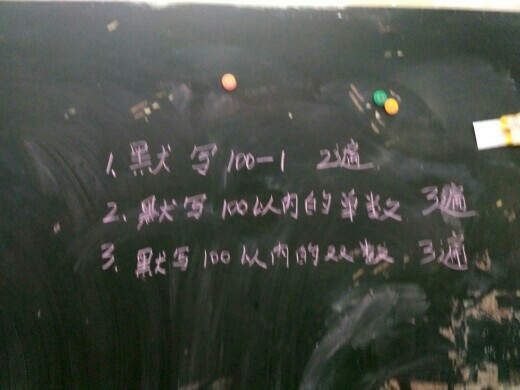 1、默写100-1 2遍
2、默写100以内的单数 3遍
3、默写100以内的双数 3遍